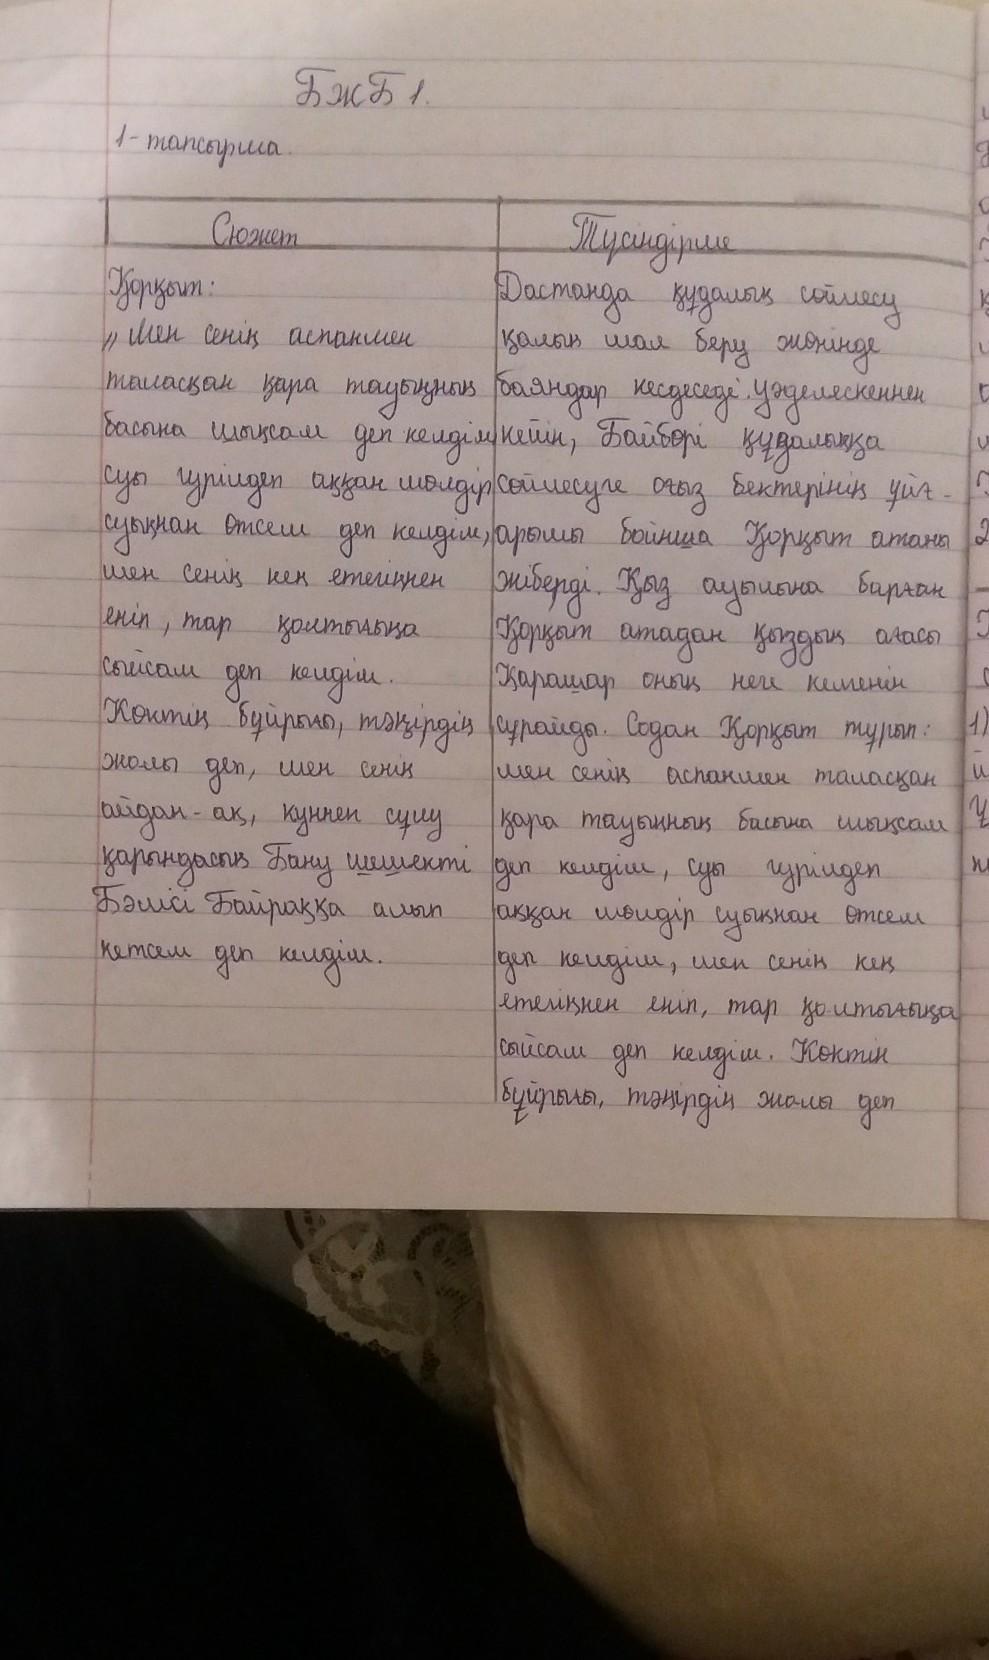 БЖБ 1.
1- тапсырма.
Сюжет
Түсіндірме
Қорқыт:
„Мен сенің аспанмен
таласқан қара тауыңның
басына шықсам деп келдім,
суы гүрілдеп аққан мөлдір
суыңнан өтсем деп келдім,
мен сенің кең етегіңнен
еніп, тар қолтығыңа
сыйсам деп келдім.
Көктің бұйрығы, тәңірдің
жолы деп, мен сенің
айдан-ақ, күннен сұлу
қарындасың Бану шешекті
Бәмсі Байраққа алып
кетсем деп келдім.
Дастанда құдалық сөйлесу
қалың мал беру жөнінде
баяндар кесдеседі. Уәделескеннен
кейін, Байбөрі құдалыққа
сөйлесуге оғыз бектерінің ұйғ-
арымы бойнша Қорқыт атаны
жіберді. Қыз ауылына барған
Қорқыт атадан қыздың ағасы
Қарашар оның неге келгенін
сұрайды. Содан Қорқыт тұрып:
мен сенің аспанмен таласқан
қара тауыңның басына шықсам
деп келдім, суы гүрілдеп
аққан мөлдір суыңнан өтсем
деп келдім, мен сенің кең
етегіңнен еніп, тар қолтығыңа
сыйсам деп келдім. Көктің
бұйрығы, тәңірдің жолы деп